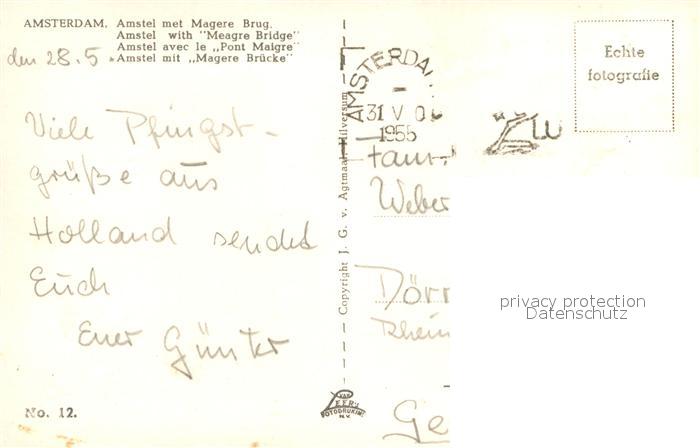 AMSTERDAM. Amstel met Magere Brug.
Amstel with "Meagre Bridge"
Amstel avec le „Pont Maigre"
den 28.5 Amstel mit „Magere Brücke"
Viele Pfingst-
grüße aus
Holland sendet
Euch
Euer Günter
No. 12.
Copyright J. G. v. Agtmaal, Hilversum
VAN LEER'S
FOTODRUKIND.
N.V.
AMSTERDA
31 V 0
1955
Echte
fotografie
Fam.
Weber
Dörr
Rhein
Ge
privacy protection
Datenschutz